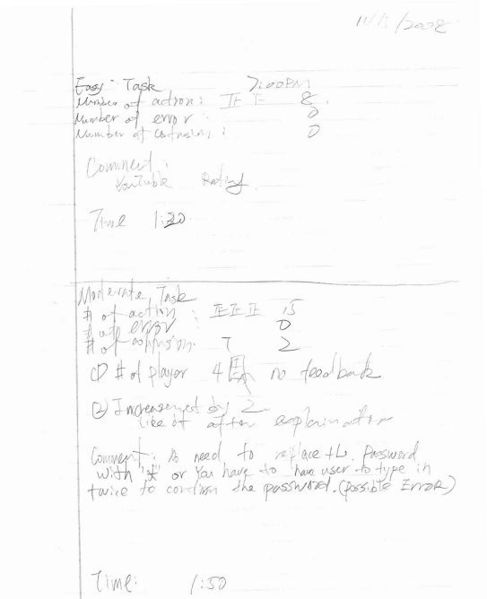 /2008
Easy Task 7:00PM
Number of action: 正 下 8
Number of error: 0
Number of confusion: 0
Comment:
YouTube Rating
Time 1:30
Moderate Task
# of action: 正 正 正 15
# of error 0
# of confusion 2
① # of player 4 no feedback
② Increasement by 2
like it after explaination
Comment: need to replace the Password
with "*" or you have to have user to type in
twice to confirm the password. (possible Error)
Time: 1:50